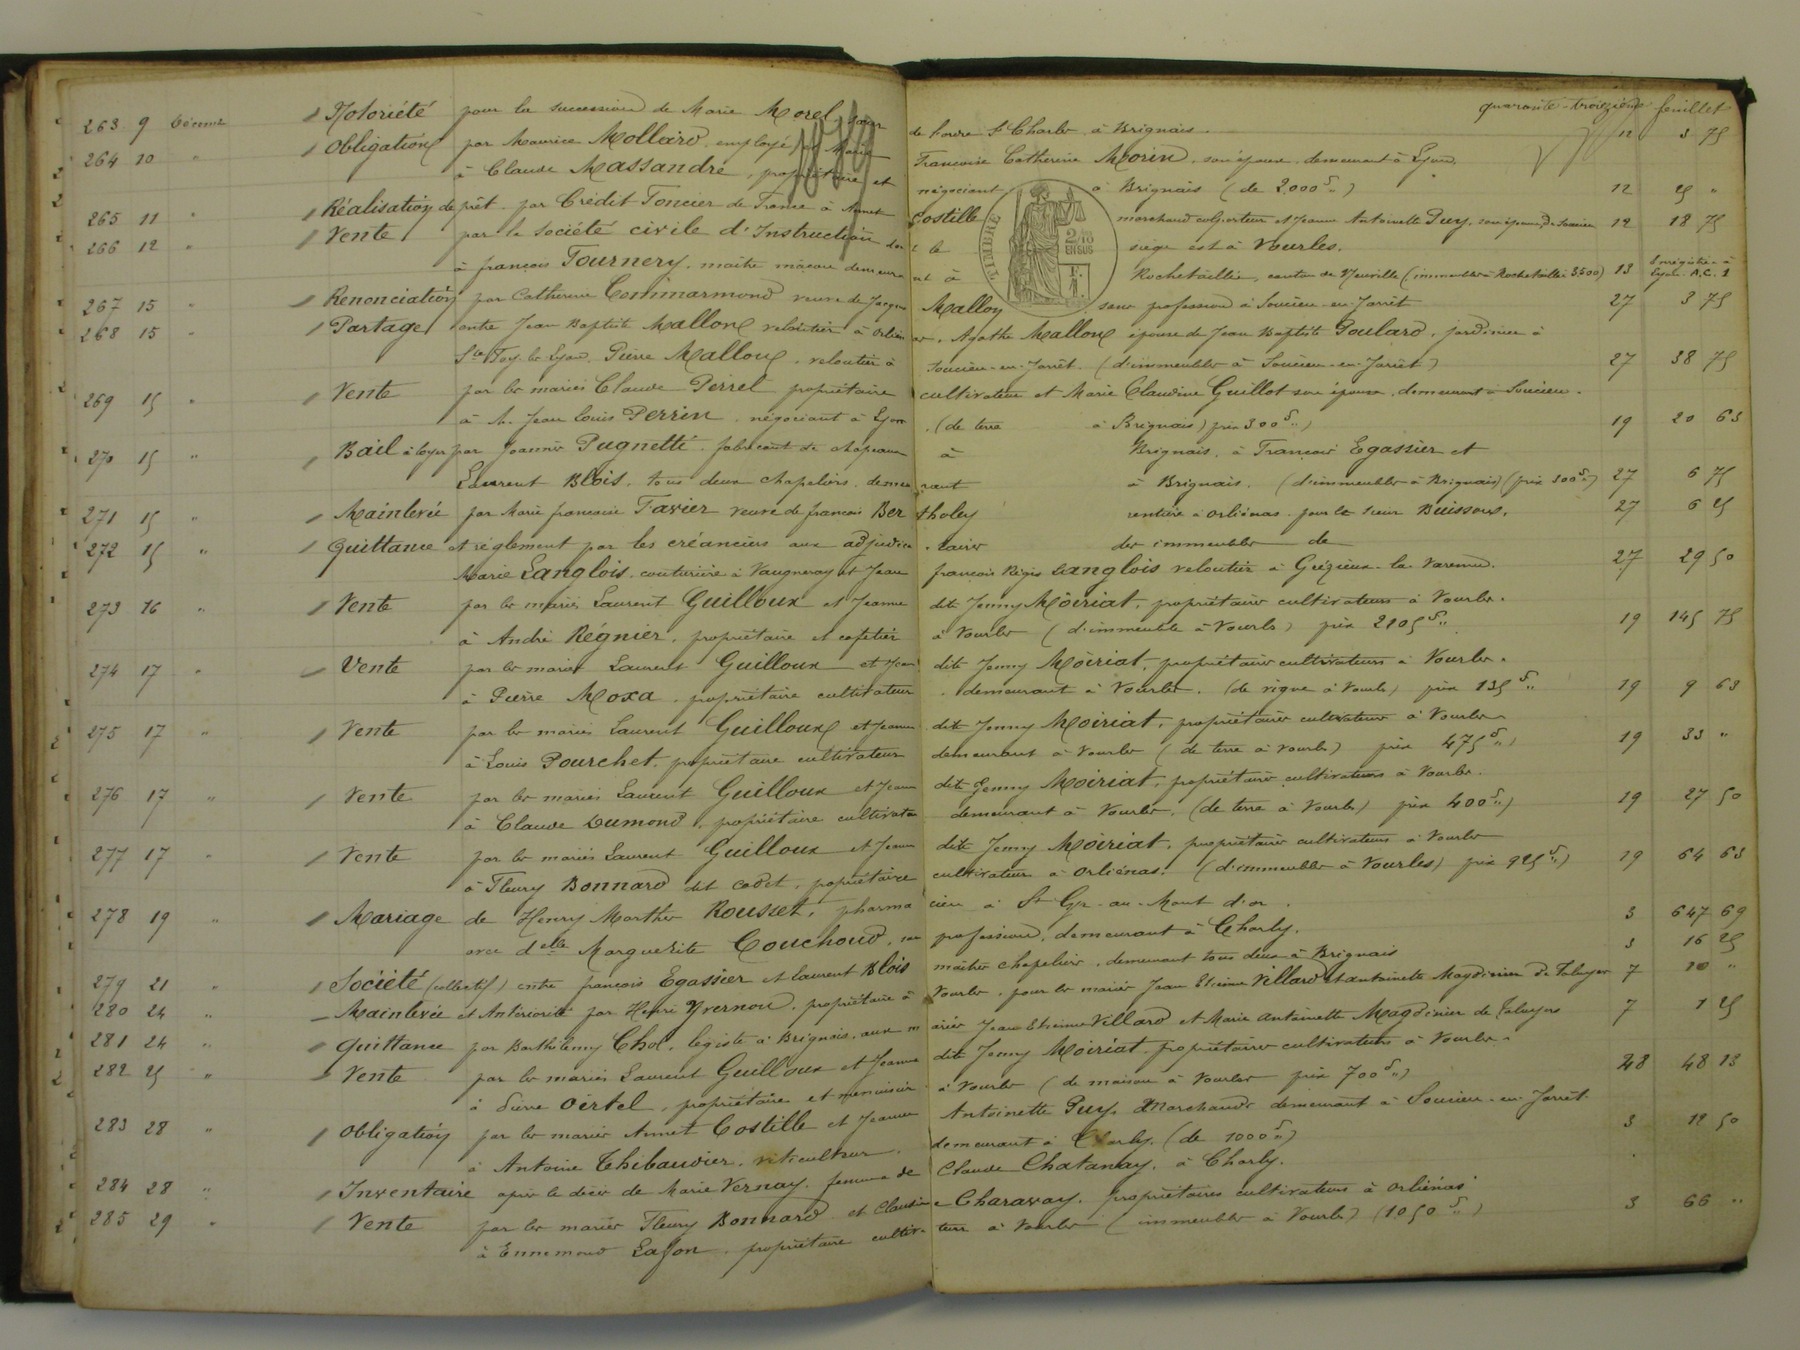 quarante-troisième feuillet
1879
263 9 Décembre Notoriété pour la succession de Marie Morel, sœur de l'ordre St Charles à Brignais. 12 3 75
264 10 " Obligation par Maurice Mollard, employé, et Marie Françoise Catherine Morin, son épouse, demeurant à Lyon,
à Claude Massandre, propriétaire et négociant à Brignais (de 2,000 f ") 12 25 "
TIMBRE 2/10 EN SUS
265 11 " Réalisation de prêt par Crédit Foncier de France à Annet Costille marchand colporteur et Jeanne Antoinette Puy, son épouse, de Soucieu 12 18 75
266 12 " Vente par la société civile d'Instruction dont le siège est à Vourles.
à françois Tournery, maître maçon demeurant à Rochetaillée, canton de Neuville (immeubles à Rochetaillée 3500) 13 Enregistré à Lyon A.C. 1
267 15 " Renonciation par Catherine Commarmond veuve de Jacques Malloy sans profession à Soucieu-en-Jarrêt 27 3 75
268 15 " Partage entre Jean Baptiste Mallon veloutier à Orliénas, Agathe Mallon épouse de Jean Baptiste Poulard, jardinier à
Ste Foy-les-Lyon, Pierre Mallon, veloutier à Soucieu-en-Jarrêt. (d'immeubles à Soucieu-en-Jarrêt) 27 38 75
269 15 " Vente par les mariés Claude Perrel propriétaire cultivateur et Marie Claudine Guillot son épouse, demeurant à Soucieu.
à M. Jean Louis Perrin, négociant à Lyon. (de terre à Brignais) prix 300 f ") 19 20 63
270 15 " Bail à loyer par Joannès Pugnetti fabricant de chapeaux à Brignais, à François Egassier et
Laurent Blois, tous deux chapeliers, demeurant à Brignais. (d'immeubles à Brignais) (prix 300 f ") 27 6 75
271 15 " Mainlevée par Marie françoise Favier veuve de françois Bertholey rentière à Orliénas pour le sieur Buisson. 27 6 25
272 15 " Quittance et règlement par les créanciers aux adjudicataires des immeubles de
Marie Langlois, couturière à Vaugneray et Jean françois Régis Langlois veloutier à Grézieux-la-Varenne. 27 29 50
273 16 " Vente par les mariés Laurent Guilloux et Jeanne dite Jenny Moiriat, propriétaires cultivateurs à Vourles.
à André Régnier, propriétaire et cafetier à Vourles (d'immeuble à Vourles) prix 2105 f " 19 145 75
274 17 " Vente par les mariés Laurent Guilloux et Jeanne dite Jenny Moiriat, propriétaires cultivateurs à Vourles.
à Pierre Moxa, propriétaire cultivateur, demeurant à Vourles. (de vigne à Vourles) prix 135 f " 19 9 63
275 17 " Vente par les mariés Laurent Guilloux et Jeanne dite Jenny Moiriat, propriétaires cultivateurs à Vourles
à Louis Pourchet, propriétaire cultivateur demeurant à Vourles (de terre à Vourles) prix 475 f ") 19 33 "
276 17 " Vente par les mariés Laurent Guilloux et Jeanne dite Jenny Moiriat, propriétaires cultivateurs à Vourles.
à Claude Dumond, propriétaire cultivateur demeurant à Vourles. (de terre à Vourles) prix 400 f ") 19 27 50
277 17 " Vente par les mariés Laurent Guilloux et Jeanne dite Jenny Moiriat, propriétaires cultivateurs à Vourles
à Fleury Bonnard dit cadet, propriétaire cultivateur à Orliénas. (d'immeubles à Vourles) prix 925 f ") 19 64 63
278 19 " Mariage de Henry Marthe Rousset, pharmacien à St Cyr-au-Mont d'or.
avec delle Marguerite Couchoud, sans profession, demeurant à Charly. 3 647 69
279 21 " Société (collectif) entre françois Egassier et Laurent Blois maîtres chapeliers, demeurant tous deux à Brignais 3 16 25
280 24 " Mainlevée et Antériorité par Henri Yvernou, propriétaire à Vourles, pour les mariés Jean Etienne Villard et antoinette Magdinier de Taluyers 7 10 "
281 24 " Quittance par Barthélemy Chol, légiste à Brignais, aux mariés Jean Etienne Villard et Marie Antoinette Magdinier de Taluyers 7 1 25
282 25 " Vente par les mariés Laurent Guilloux et Jeanne dite Jenny Moiriat, propriétaires cultivateurs à Vourles.
à Pierre Oertel, propriétaire et menuisier à Vourles (de maison à Vourles prix 700 f ") 28 48 13
283 28 " Obligation par les mariés Annet Costille et Jeanne Antoinette Puy, Marchands demeurant à Soucieu-en-Jarrêt.
à Antoine Thibaudier, viticulteur, demeurant à Charly. (de 1000 f ") 3 12 50
284 28 " Inventaire après le décès de Marie Vernay, femme de Claude Chatanay, à Charly.
285 29 " Vente par les mariés Fleury Bonnard et Claudine Charavay, propriétaires cultivateurs à Orliénas
à Ennemond Lafon, propriétaire cultivateur à Vourles (immeubles à Vourles) (1050 f ") 3 66 "